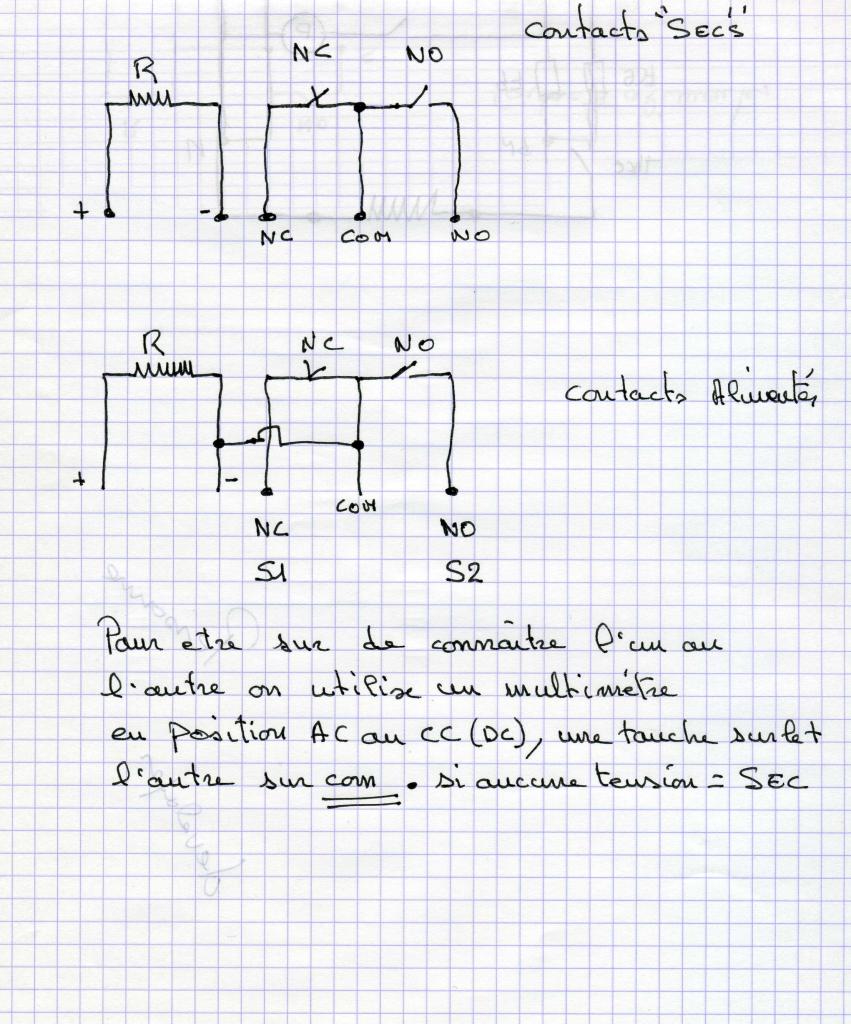 Contacts "SECS"
NC NO
R
+ - NC COM NO
R NC NO
Contacts Alimentés
+ - COM
NC NO
S1 S2
Pour etre sur de connaître l'un ou
l'autre on utilise un multimétre
en position AC ou CC (DC), une touche sur le +
l'autre sur com . si aucune tension = SEC